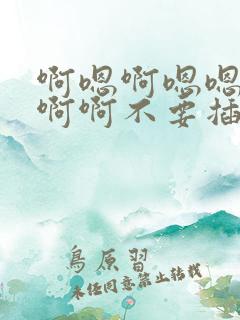 啊嗯啊嗯嗯
啊啊不要插
鳥原習
未经同意禁止转载